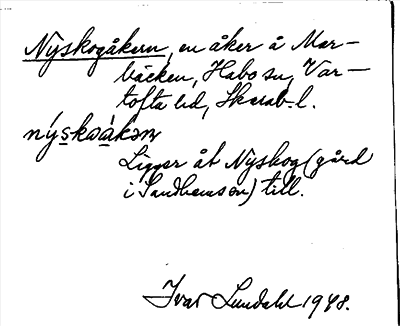 Nyskogåkern, en åker å Mar-
bäcken, Habo sn, Var-
tofta hd, Skarab. l.
nýskoàkəɳ
Ligger åt Nyskog (gård
i Sandhems sn) till.
Ivar Lundahl 1948.